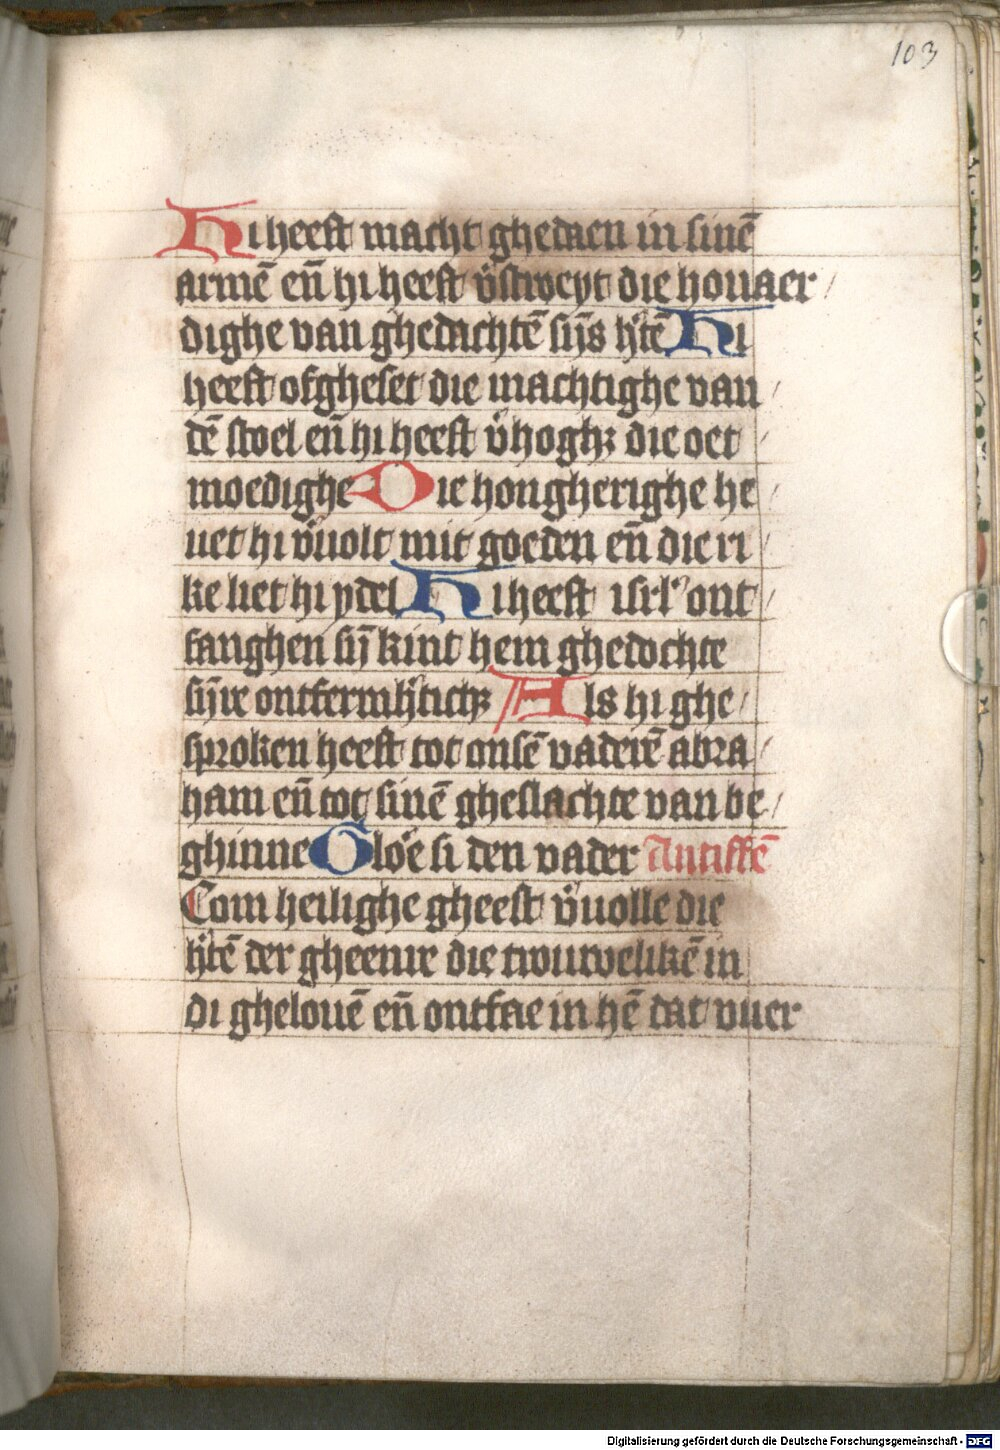 103
Hi heeft macht ghedaen in sinē
armē eñ hi heeft v̕stroeyt die houaer/
dighe van ghedachtē sijs h̕tē Hi
heeft ofgheset die machtighe van/
dē stoel eñ hi heeft v̕hoghꝫ die oet/
moedighe Die hongherighe he/
uet hi v̕uolt mit goeden eñ die ri/
ke liet hi ydel Hi heeft isrl' ont/
fanghen sij̄ kint hem ghedochte
sijre ontfermh̕tichꝫ Als hi ghe/
sproken heeft tot onsē vaderē abra/
ham eñ tot sinē gheslachte van be/
ghinne Glo͛e si den vader Antiffē
Com heilighe gheest v̕uolle die
h̕tē der gheenre die trouwelikē in
di ghelouē eñ ontfae in hē dat vuer
Digitalisierung gefördert durch die Deutsche Forschungsgemeinschaft - DFG